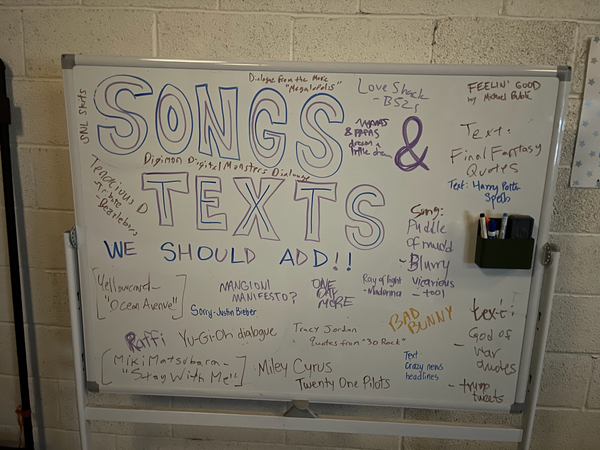 SNL Skits
Dialogue from the Movie
"Megalopolis"
SONGS
&
TEXTS
WE SHOULD ADD!!
Love Shack
- B52s
MAMAS
& PAPAS
dream a
little dream
FEELIN' GOOD
by Michael Bublé
Text:
Final Fantasy
Quotes
Text: Harry Potter
Spells
Digimon Digital Monsters Dialogue
Tenacious D
Beelzeboss
Song:
Puddle
of mudd
- Blurry
vicarious
- tool
Yellowcard-
"Ocean Avenue"
Sorry-Justin Bieber
MANGIONI
MANIFESTO?
ONE
DAY
MORE
Ray of light
- Madonna
BAD
BUNNY
text:
God of
- war
quotes
- trump
tweets
Raffi
Yu-Gi-Oh dialogue
Tracy Jordan
quotes from "30 Rock"
Miki Matsubara-
"Stay With Me"
Miley Cyrus
Twenty One Pilots
Text
Crazy news
headlines